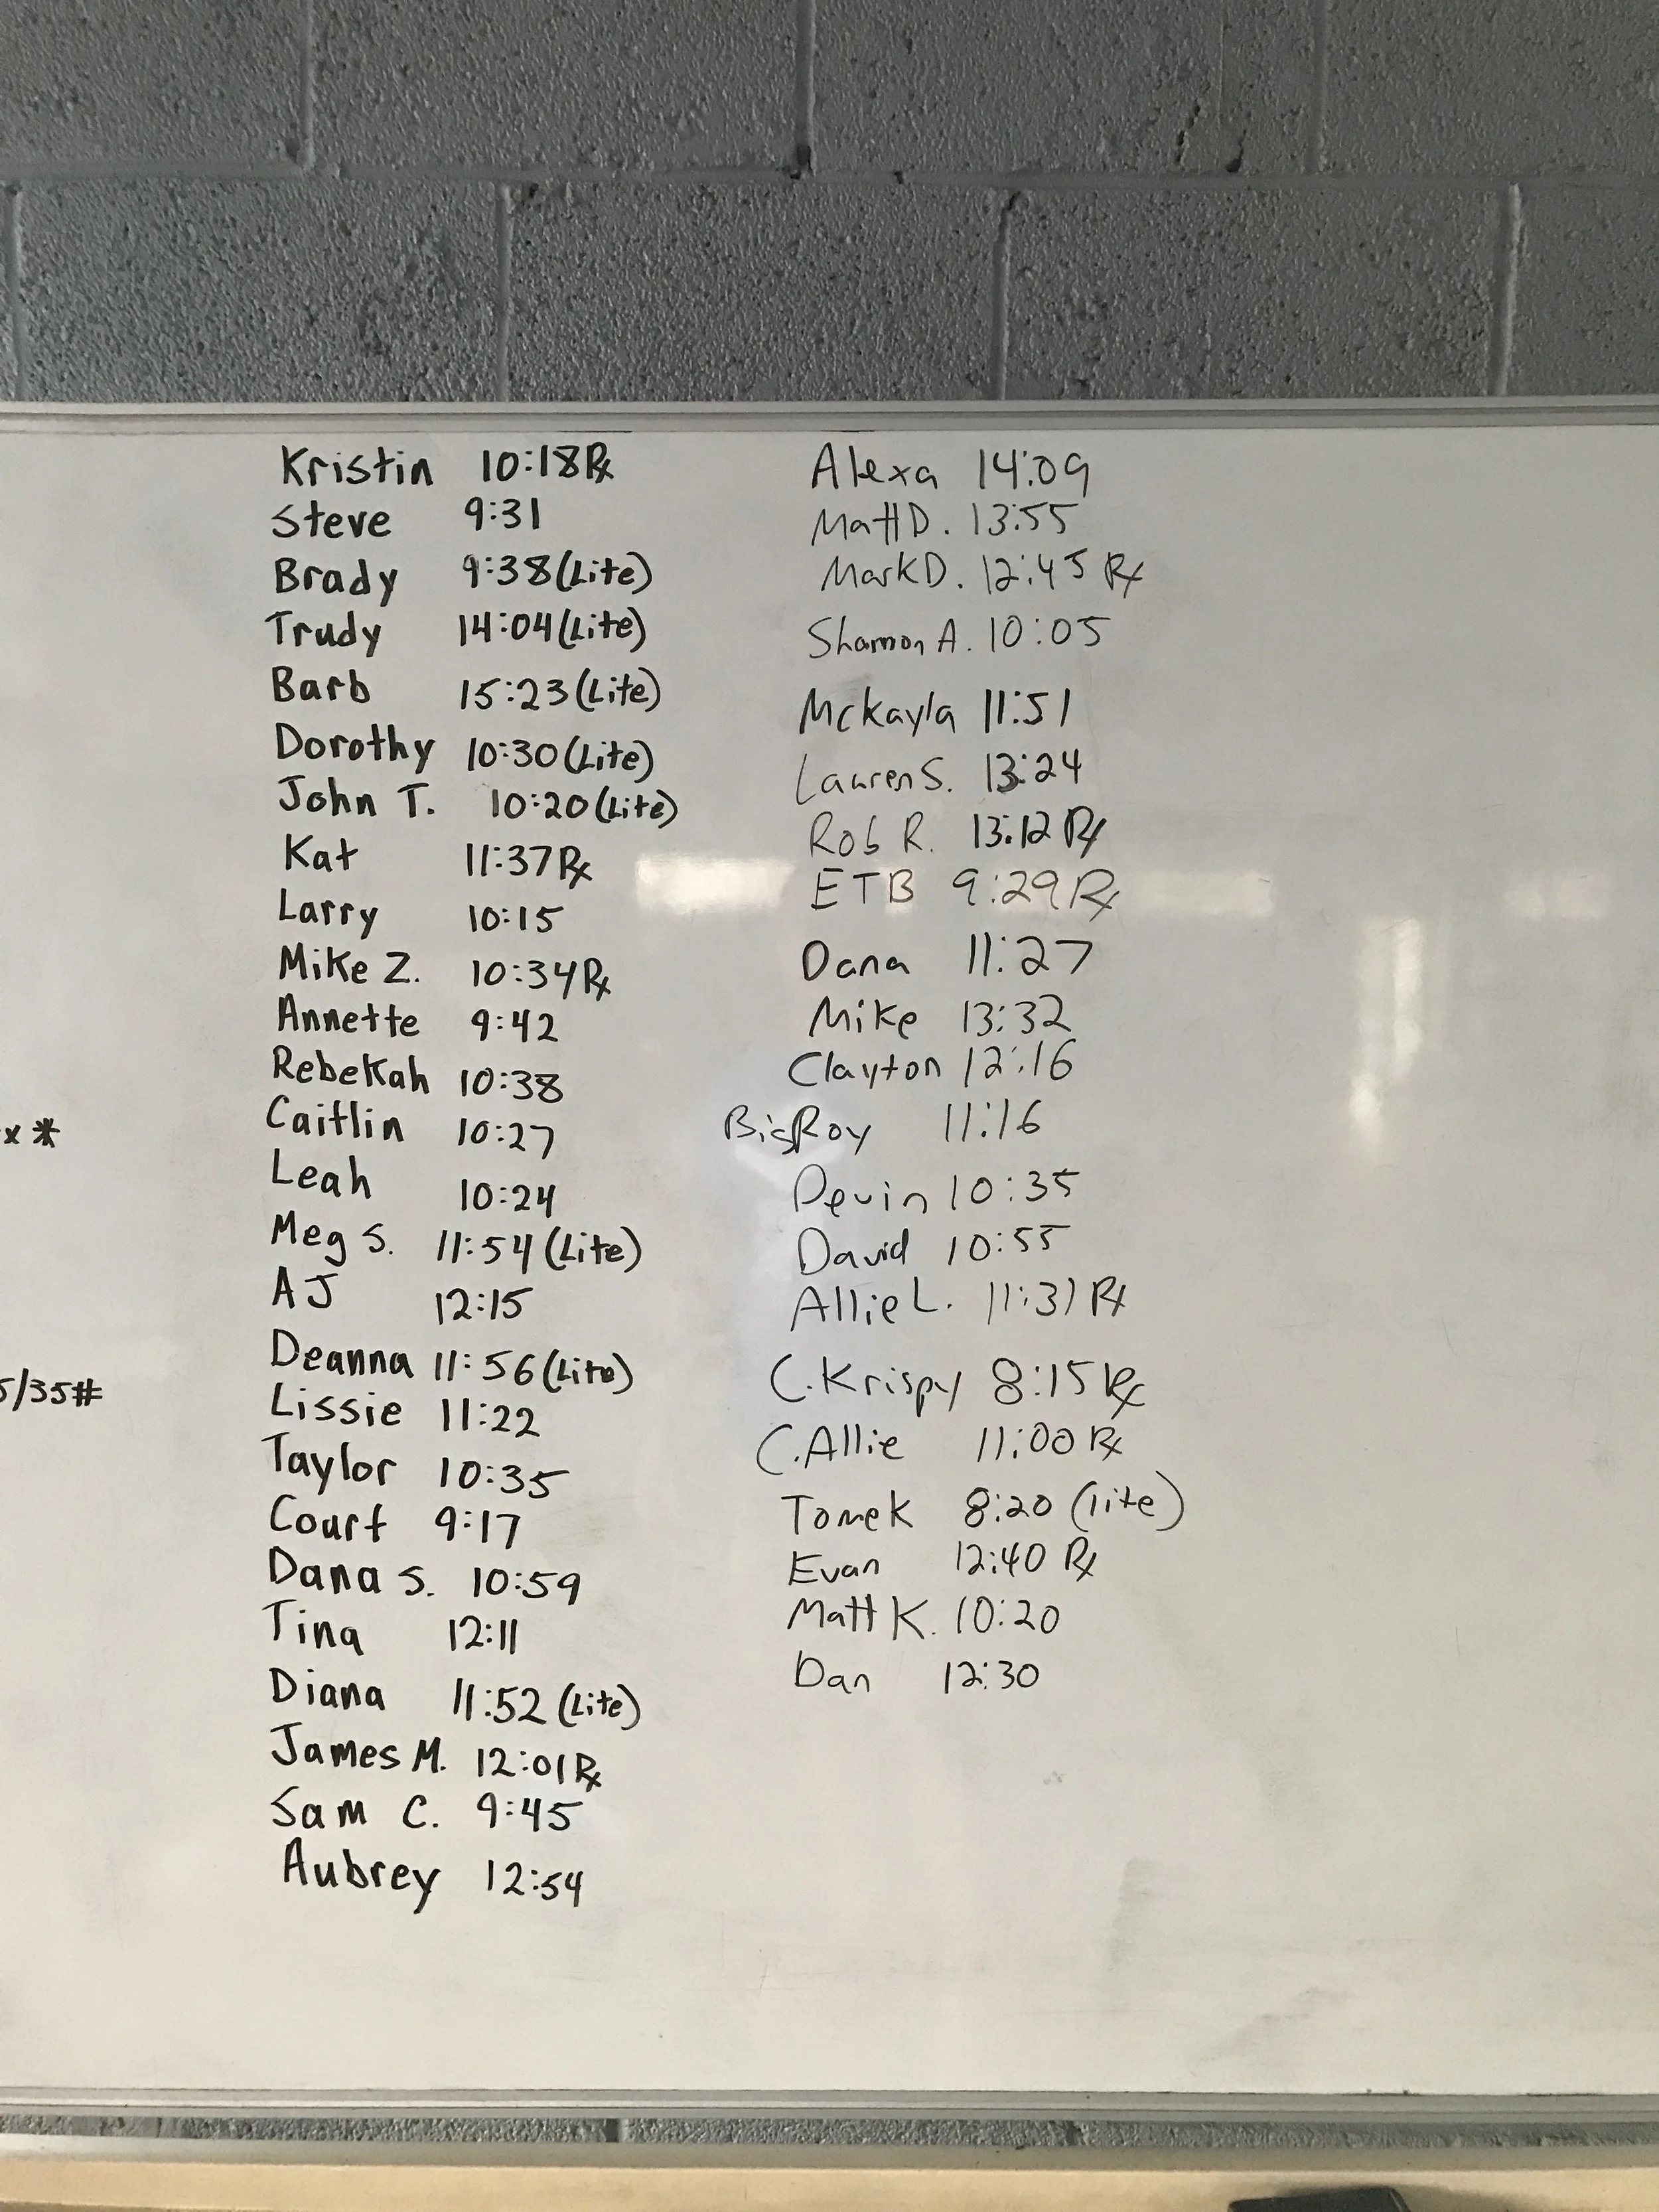 Kristin 10:18 Rx
Steve 9:31
Brady 9:38 (Lite)
Trudy 14:04 (Lite)
Barb 15:23 (Lite)
Dorothy 10:30 (Lite)
John T. 10:20 (Lite)
Kat 11:37 Rx
Larry 10:15
Mike Z. 10:34 Rx
Annette 9:42
Rebekah 10:38
Caitlin 10:27
Leah 10:24
Meg S. 11:54 (Lite)
AJ 12:15
Deanna 11:56 (Lite)
Lissie 11:22
Taylor 10:35
Court 9:17
Dana S. 10:59
Tina 12:11
Diana 11:52 (Lite)
James M. 12:01 Rx
Sam C. 9:45
Aubrey 12:54
Alexa 14:09
Matt D. 13:55
Mark D. 12:45 Rx
Shannon A. 10:05
Mckayla 11:51
Lauren S. 13:24
Rob R. 13:12 Rx
ETB 9:29 Rx
Dana 11:27
Mike 13:32
Clayton 12:16
Big Roy 11:16
Devin 10:35
David 10:55
Allie L. 11:31 Rx
C. Krispy 8:15 Rx
C. Allie 11:00 Rx
Tomek 8:20 (lite)
Evan 12:40 Rx
Matt K. 10:20
Dan 12:30
x *
5/35#